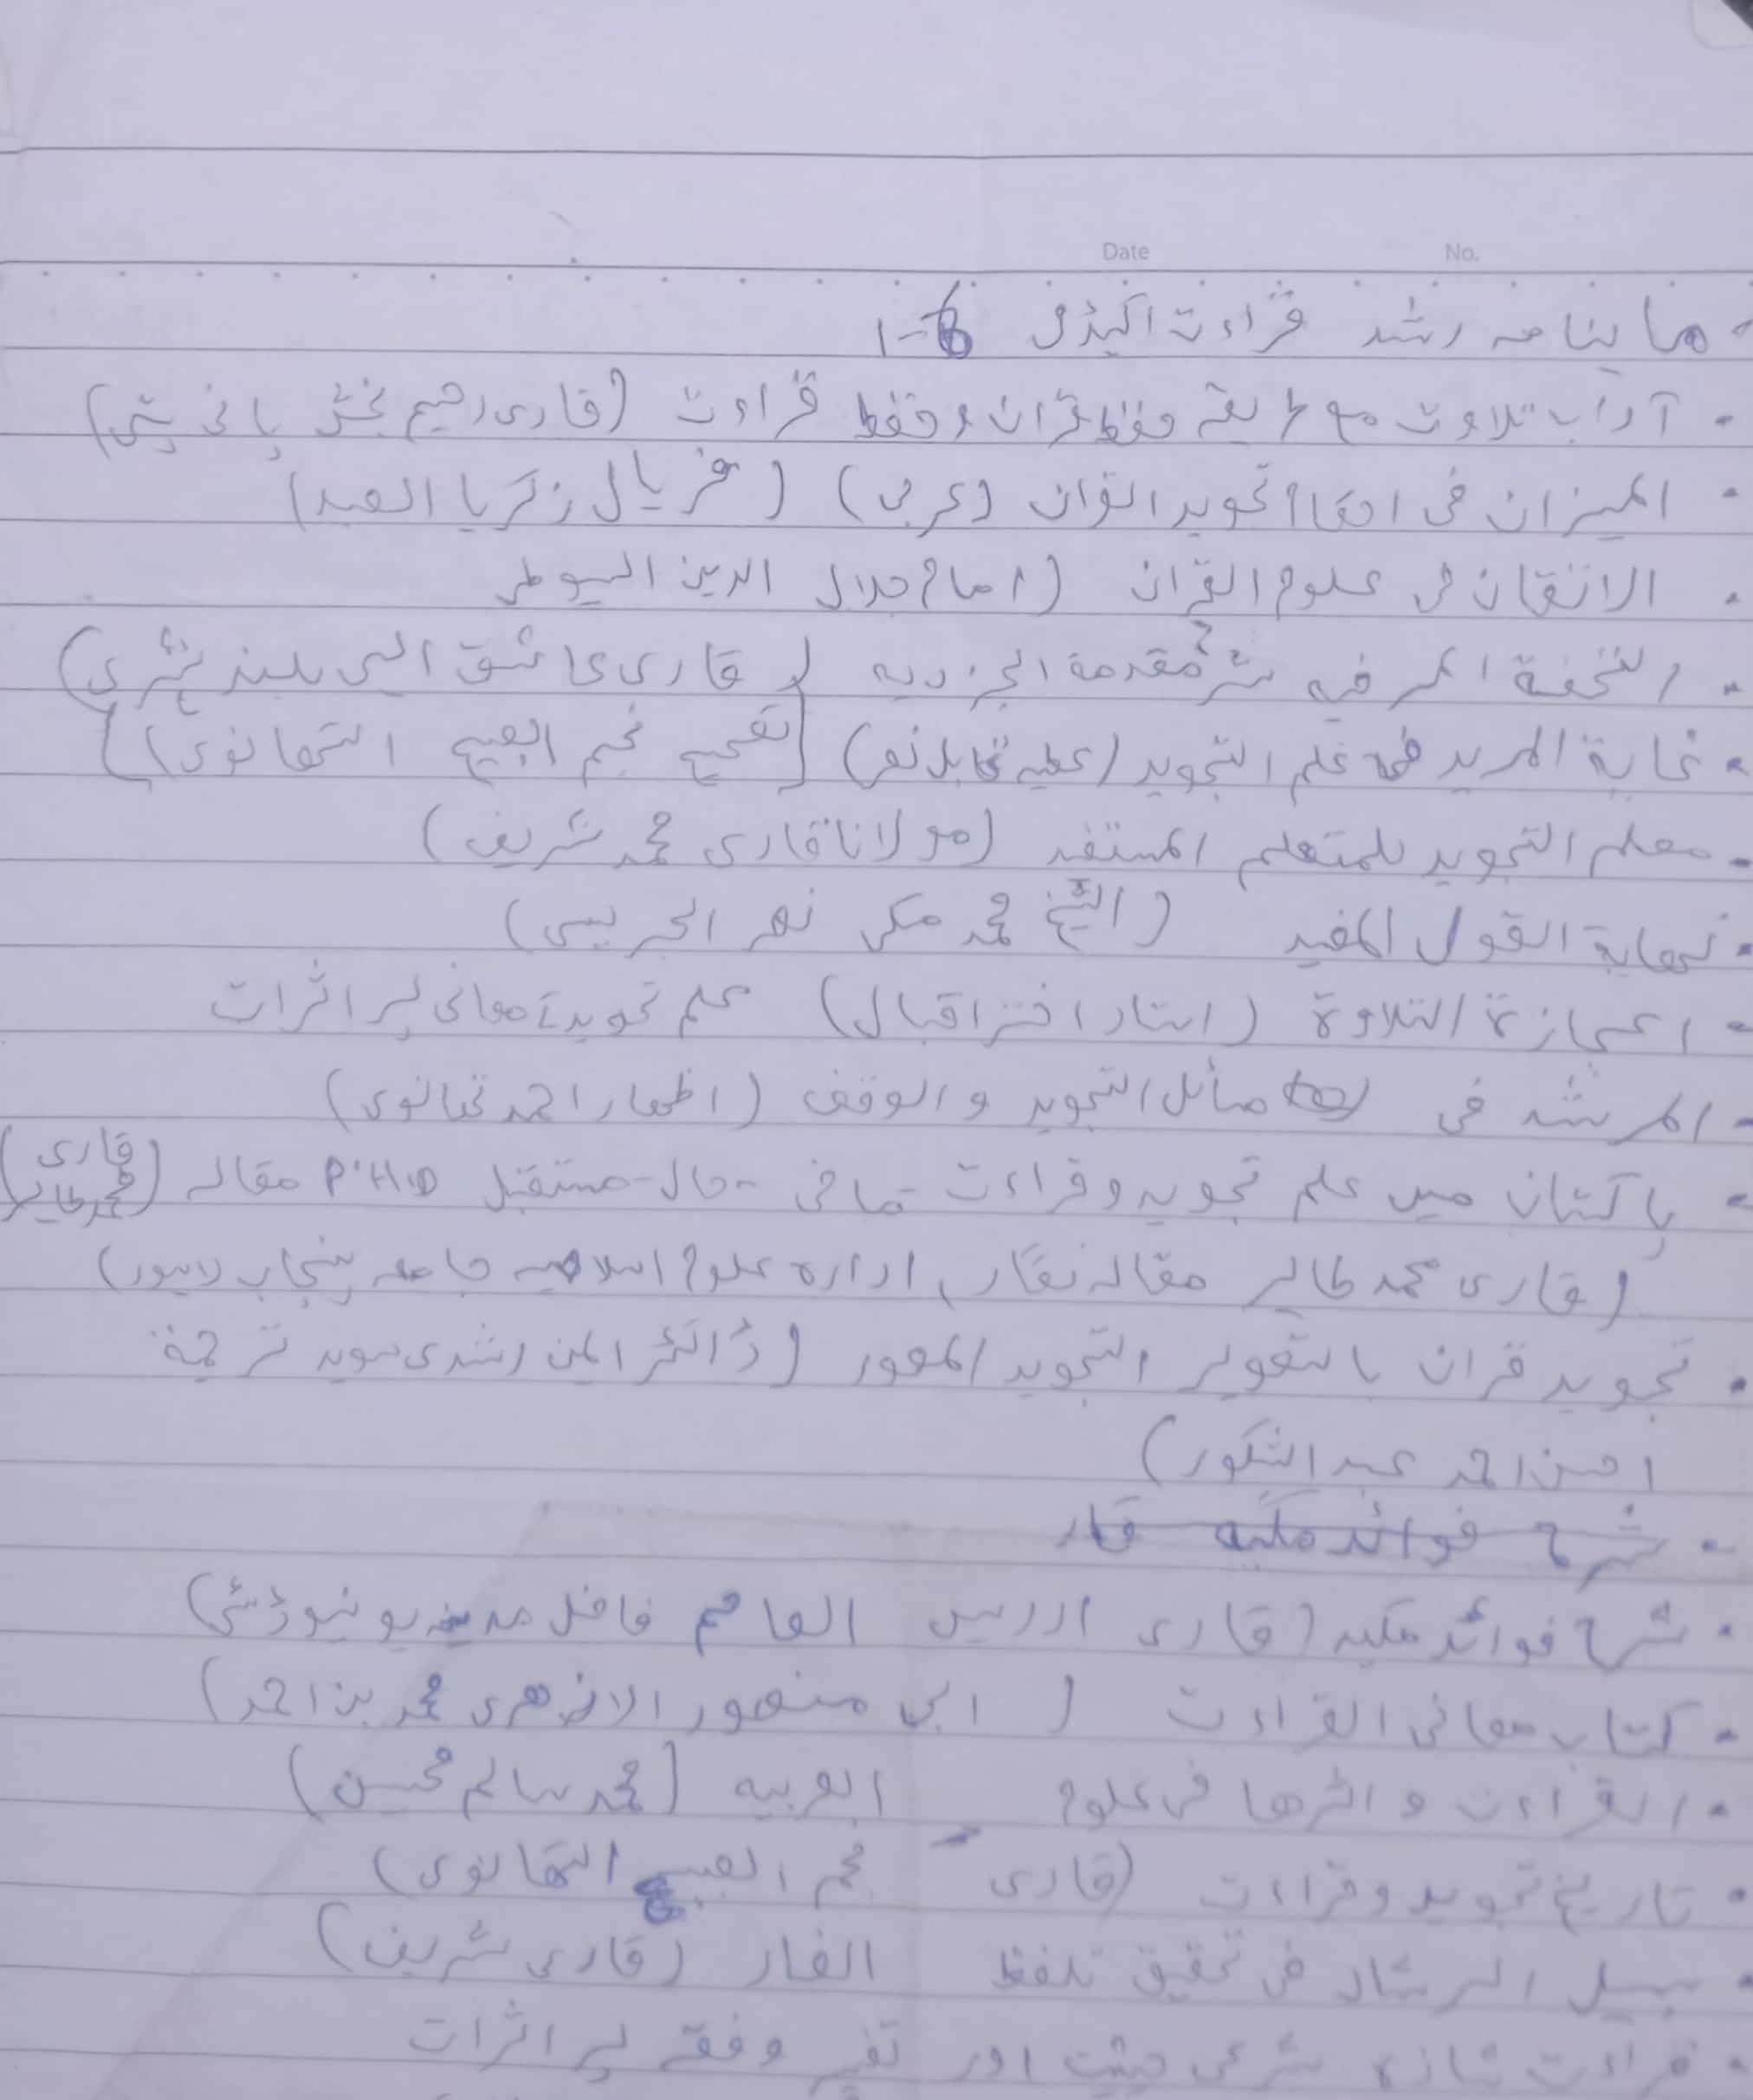 Date No.
ماہنامہ رشد قراءت اکیڈمی 6-1
• آداب تلاوت مع طریقہ حفظ قرآن و حفظ قراءت (قاری رحیم بخش پانی پتی)
• المیزان فی احکام تجوید القرآن (عربی) (فریال زکریا العبد)
• الاتقان فی علوم القرآن (امام جلال الدین السیوطی
• التحفۃ المرضیہ شرح مقدمۃ الجزریہ (قاری عاشق الہی بلند شہری)
• غایۃ المرید فی علم التجوید (عطیہ قابل نصر) [تصحیح نجم الصبیح التھانوی)]
• معلم التجوید للمتعلم المستفید (مولانا قاری محمد شریف)
• نھایۃ القول المفید (الشیخ محمد مکی نصر الجریسی)
• التلاوۃ (استاد اختر اقبال) علم تجوید معانی پر اثرات
• المرشد فی مسائل التجوید والوقف (اظھار احمد تھانوی)
• پاکستان میں علم تجوید و قراءت ماضی - حال - مستقبل P.H.D مقالہ (قاری محمد طاہر)
(قاری محمد طاہر مقالہ نگار، ادارہ علوم اسلامیہ جامعہ پنجاب لاہور)
• تجوید قرآن بالتصویر التجوید المصور (ڈاکٹر ایمن رشدی سوید ترجمۃ
احسن احمد عبد الشکور)
• شرح فوائد مکیہ قار
• شرح فوائد مکیہ (قاری ادریس العاصم فاضل مدینہ یونیورسٹی)
• کتاب معانی القراءت (ابی منصور الازھری محمد بن احمد)
• القراءت واثرھا فی علوم العربیہ (محمد سالم محیسن)
• تاریخ تجوید و قراءت (قاری نجم الصبیح التھانوی)
• سبیل الرشاد فی تحقیق تلفظ الضاد (قاری شریف)
• قراءت شاذہ شرعی حیثیت اور تفسیر و فقہ پر اثرات